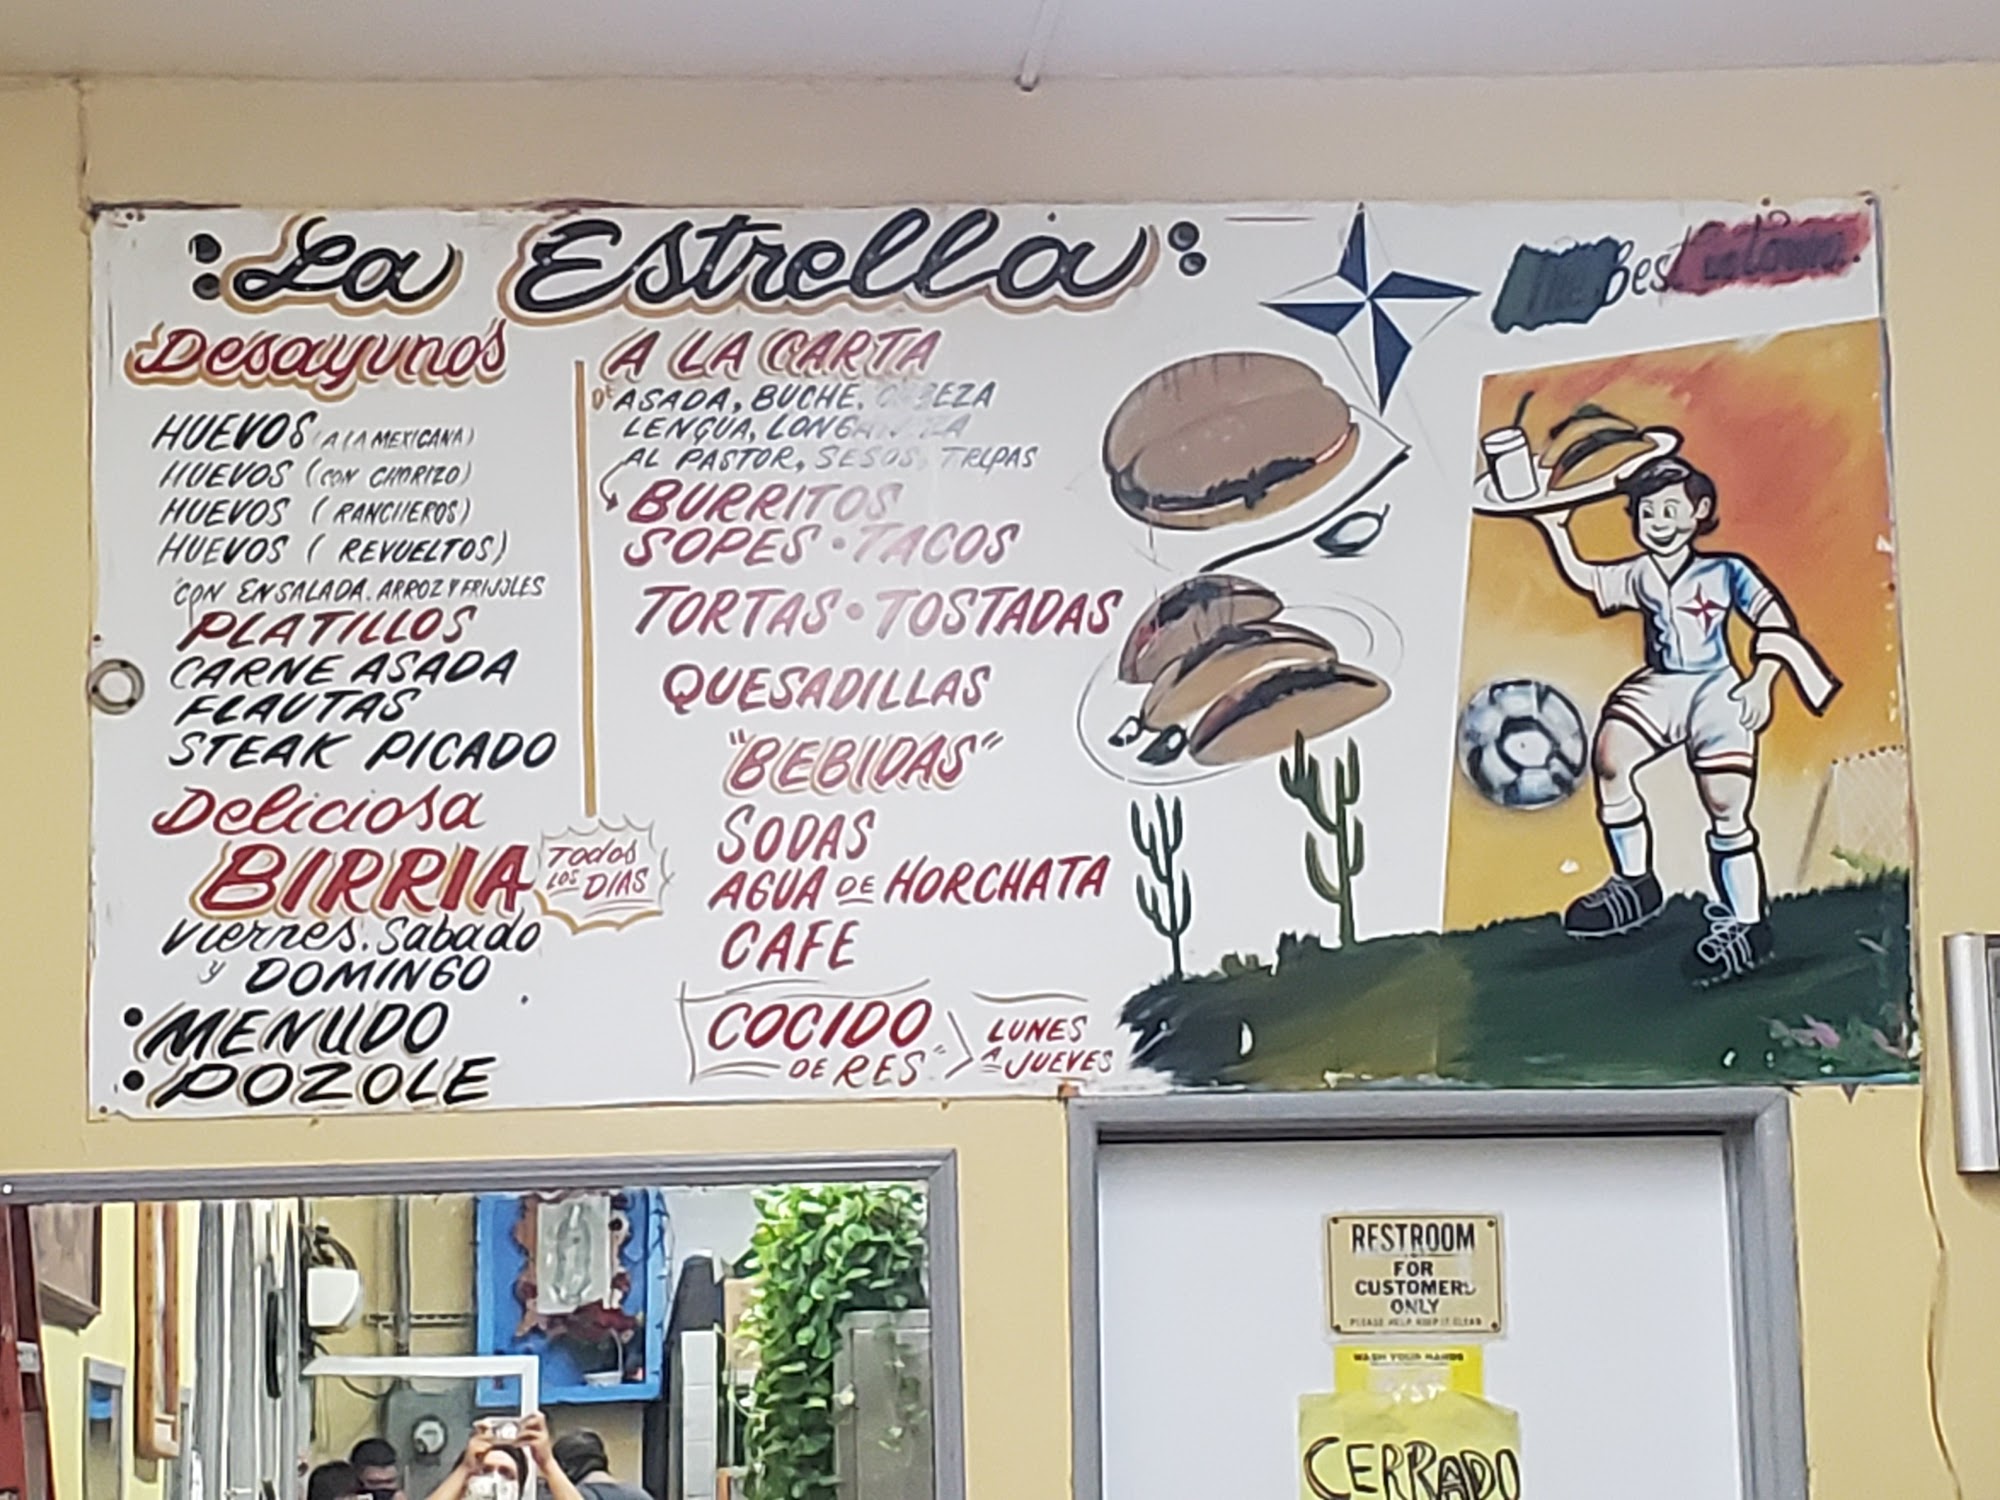 La Estrella
The Best in Town
Desayunos
HUEVOS (A LA MEXICANA)
HUEVOS (CON CHORIZO)
HUEVOS (RANCHEROS)
HUEVOS (REVUELTOS)
CON ENSALADA. ARROZ Y FRIJOLES
PLATILLOS
CARNE ASADA
FLAUTAS
STEAK PICADO
Deliciosa
BIRRIA
Todos
LOS DIAS
Viernes. Sabado
y DOMINGO
MENUDO
POZOLE
A LA CARTA
DE ASADA, BUCHE, CABEZA
LENGUA, LONGANIZA
AL PASTOR, SESOS, TRIPAS
BURRITOS
SOPES • TACOS
TORTAS • TOSTADAS
QUESADILLAS
"BEBIDAS"
SODAS
AGUA DE HORCHATA
CAFE
COCIDO
DE RES"
LUNES
A JUEVES
RESTROOM
FOR
CUSTOMERS
ONLY
PLEASE HELP KEEP IT CLEAN
WASH YOUR HANDS
CERRADO